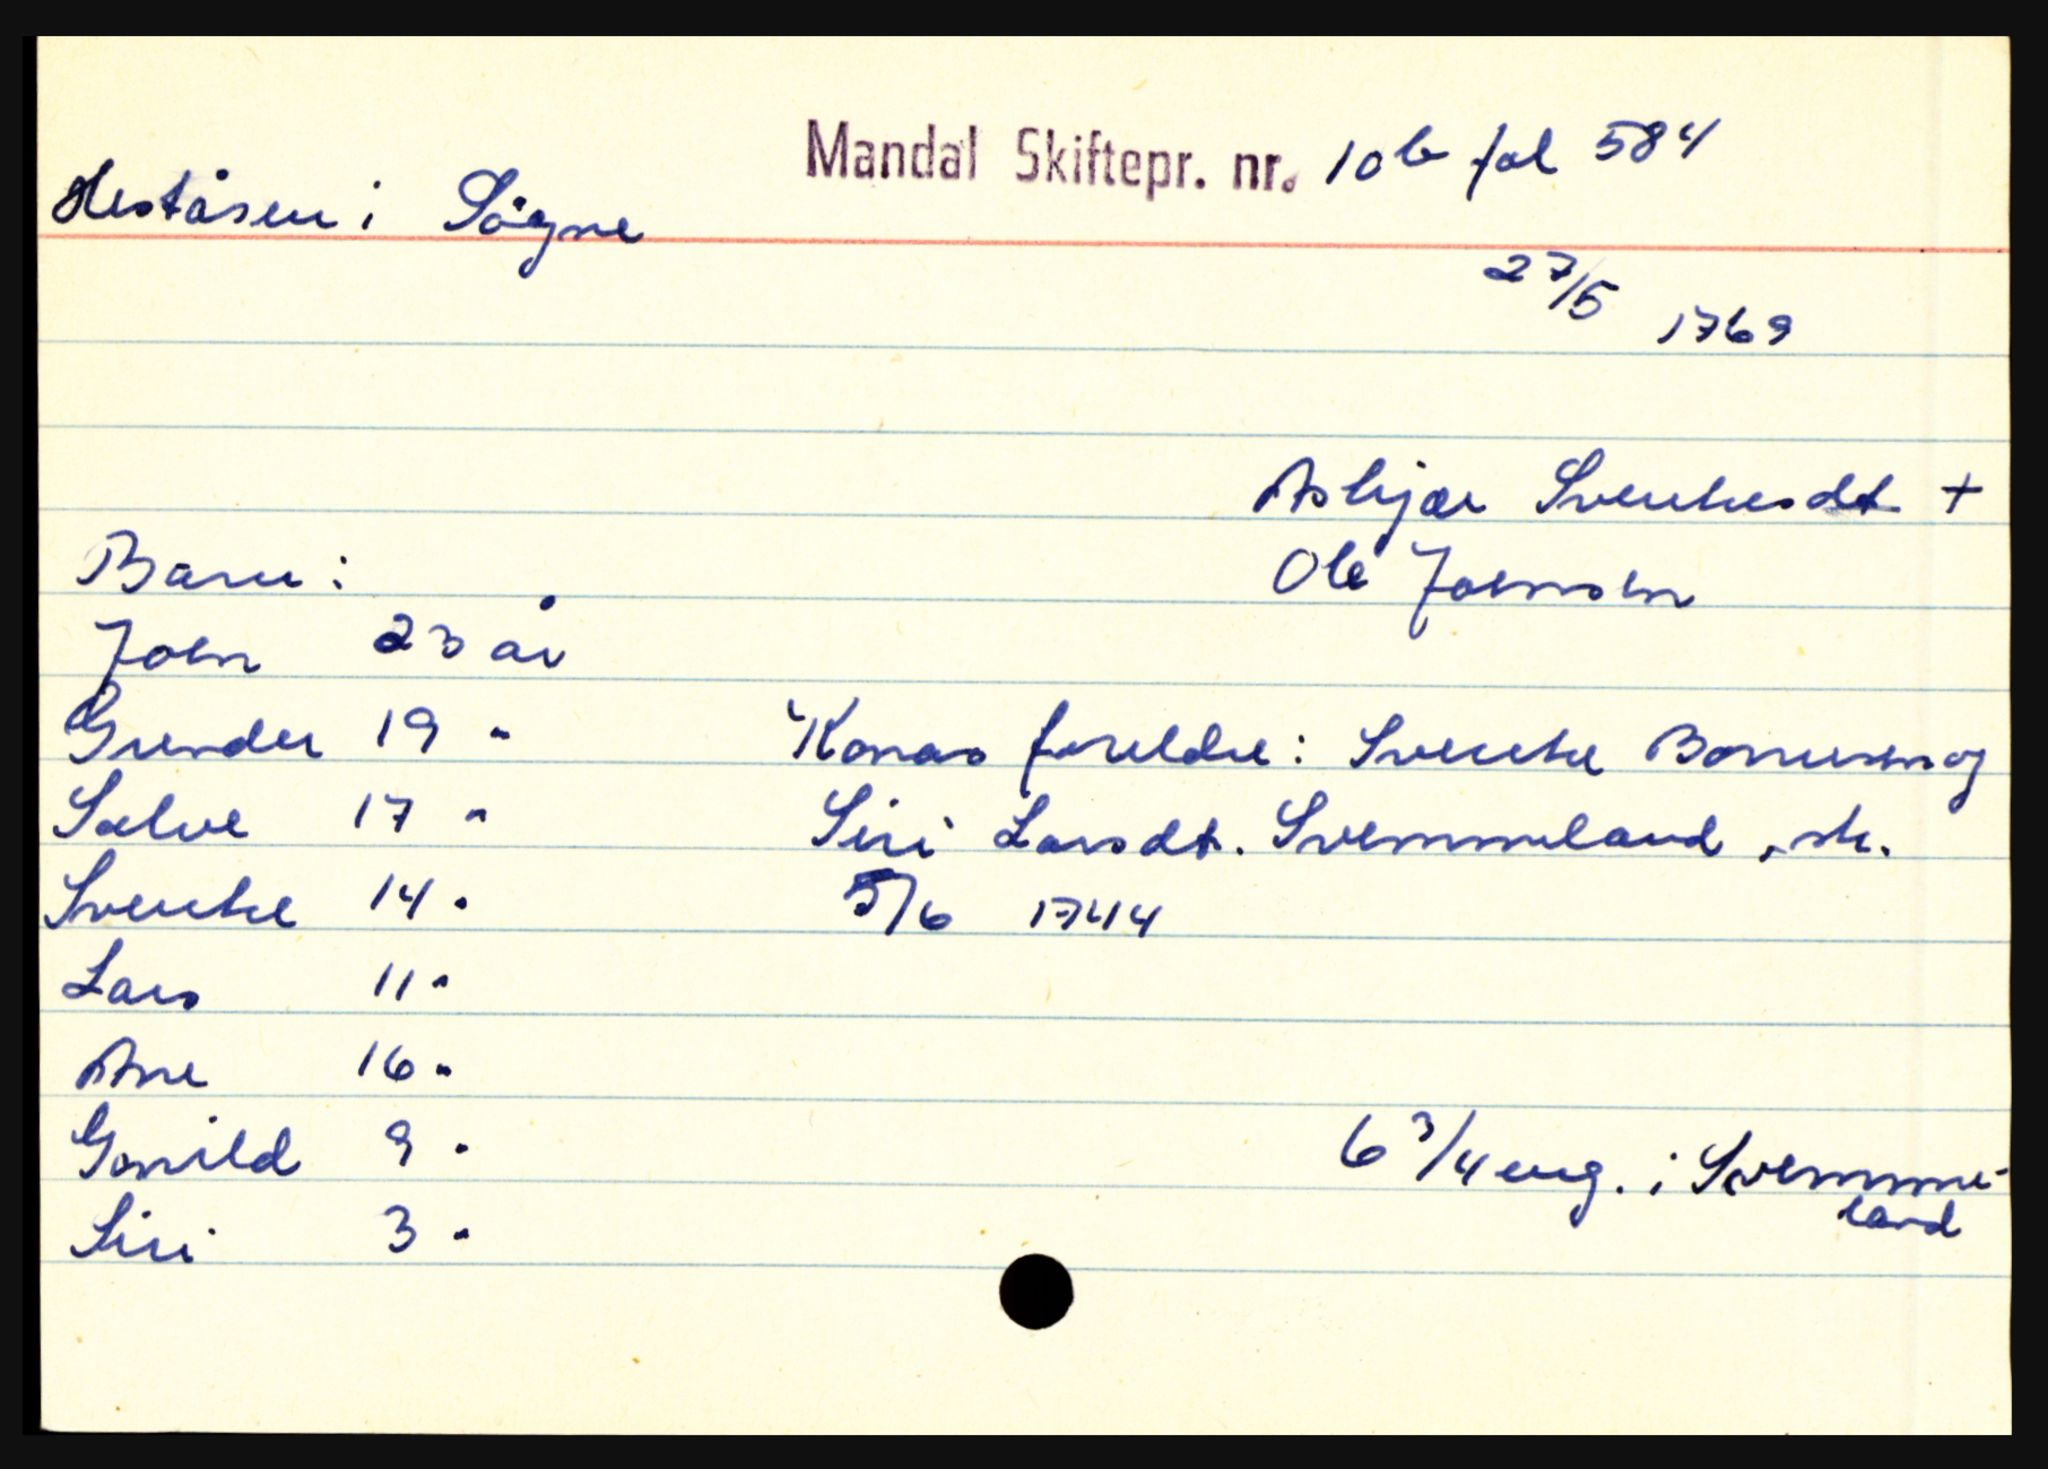 Mandal Skiftepr. nr. 10b fol 584
Heståsen i Søgne
27/5 1769
Asbjør Svenkesdt +
Ole Joensen
Barn:
Joen 23 år
Gunder 19 "
Salve 17 "
Svenke 14 "
Lars 11 "
Ane 16 "
Gunild 9 "
Siri 3 "
Konas foreldre: Svenke og
Siri Larsdt. Svemmeland, sk.
5/6 1744
6 3/4 eng. i Svemme-
land